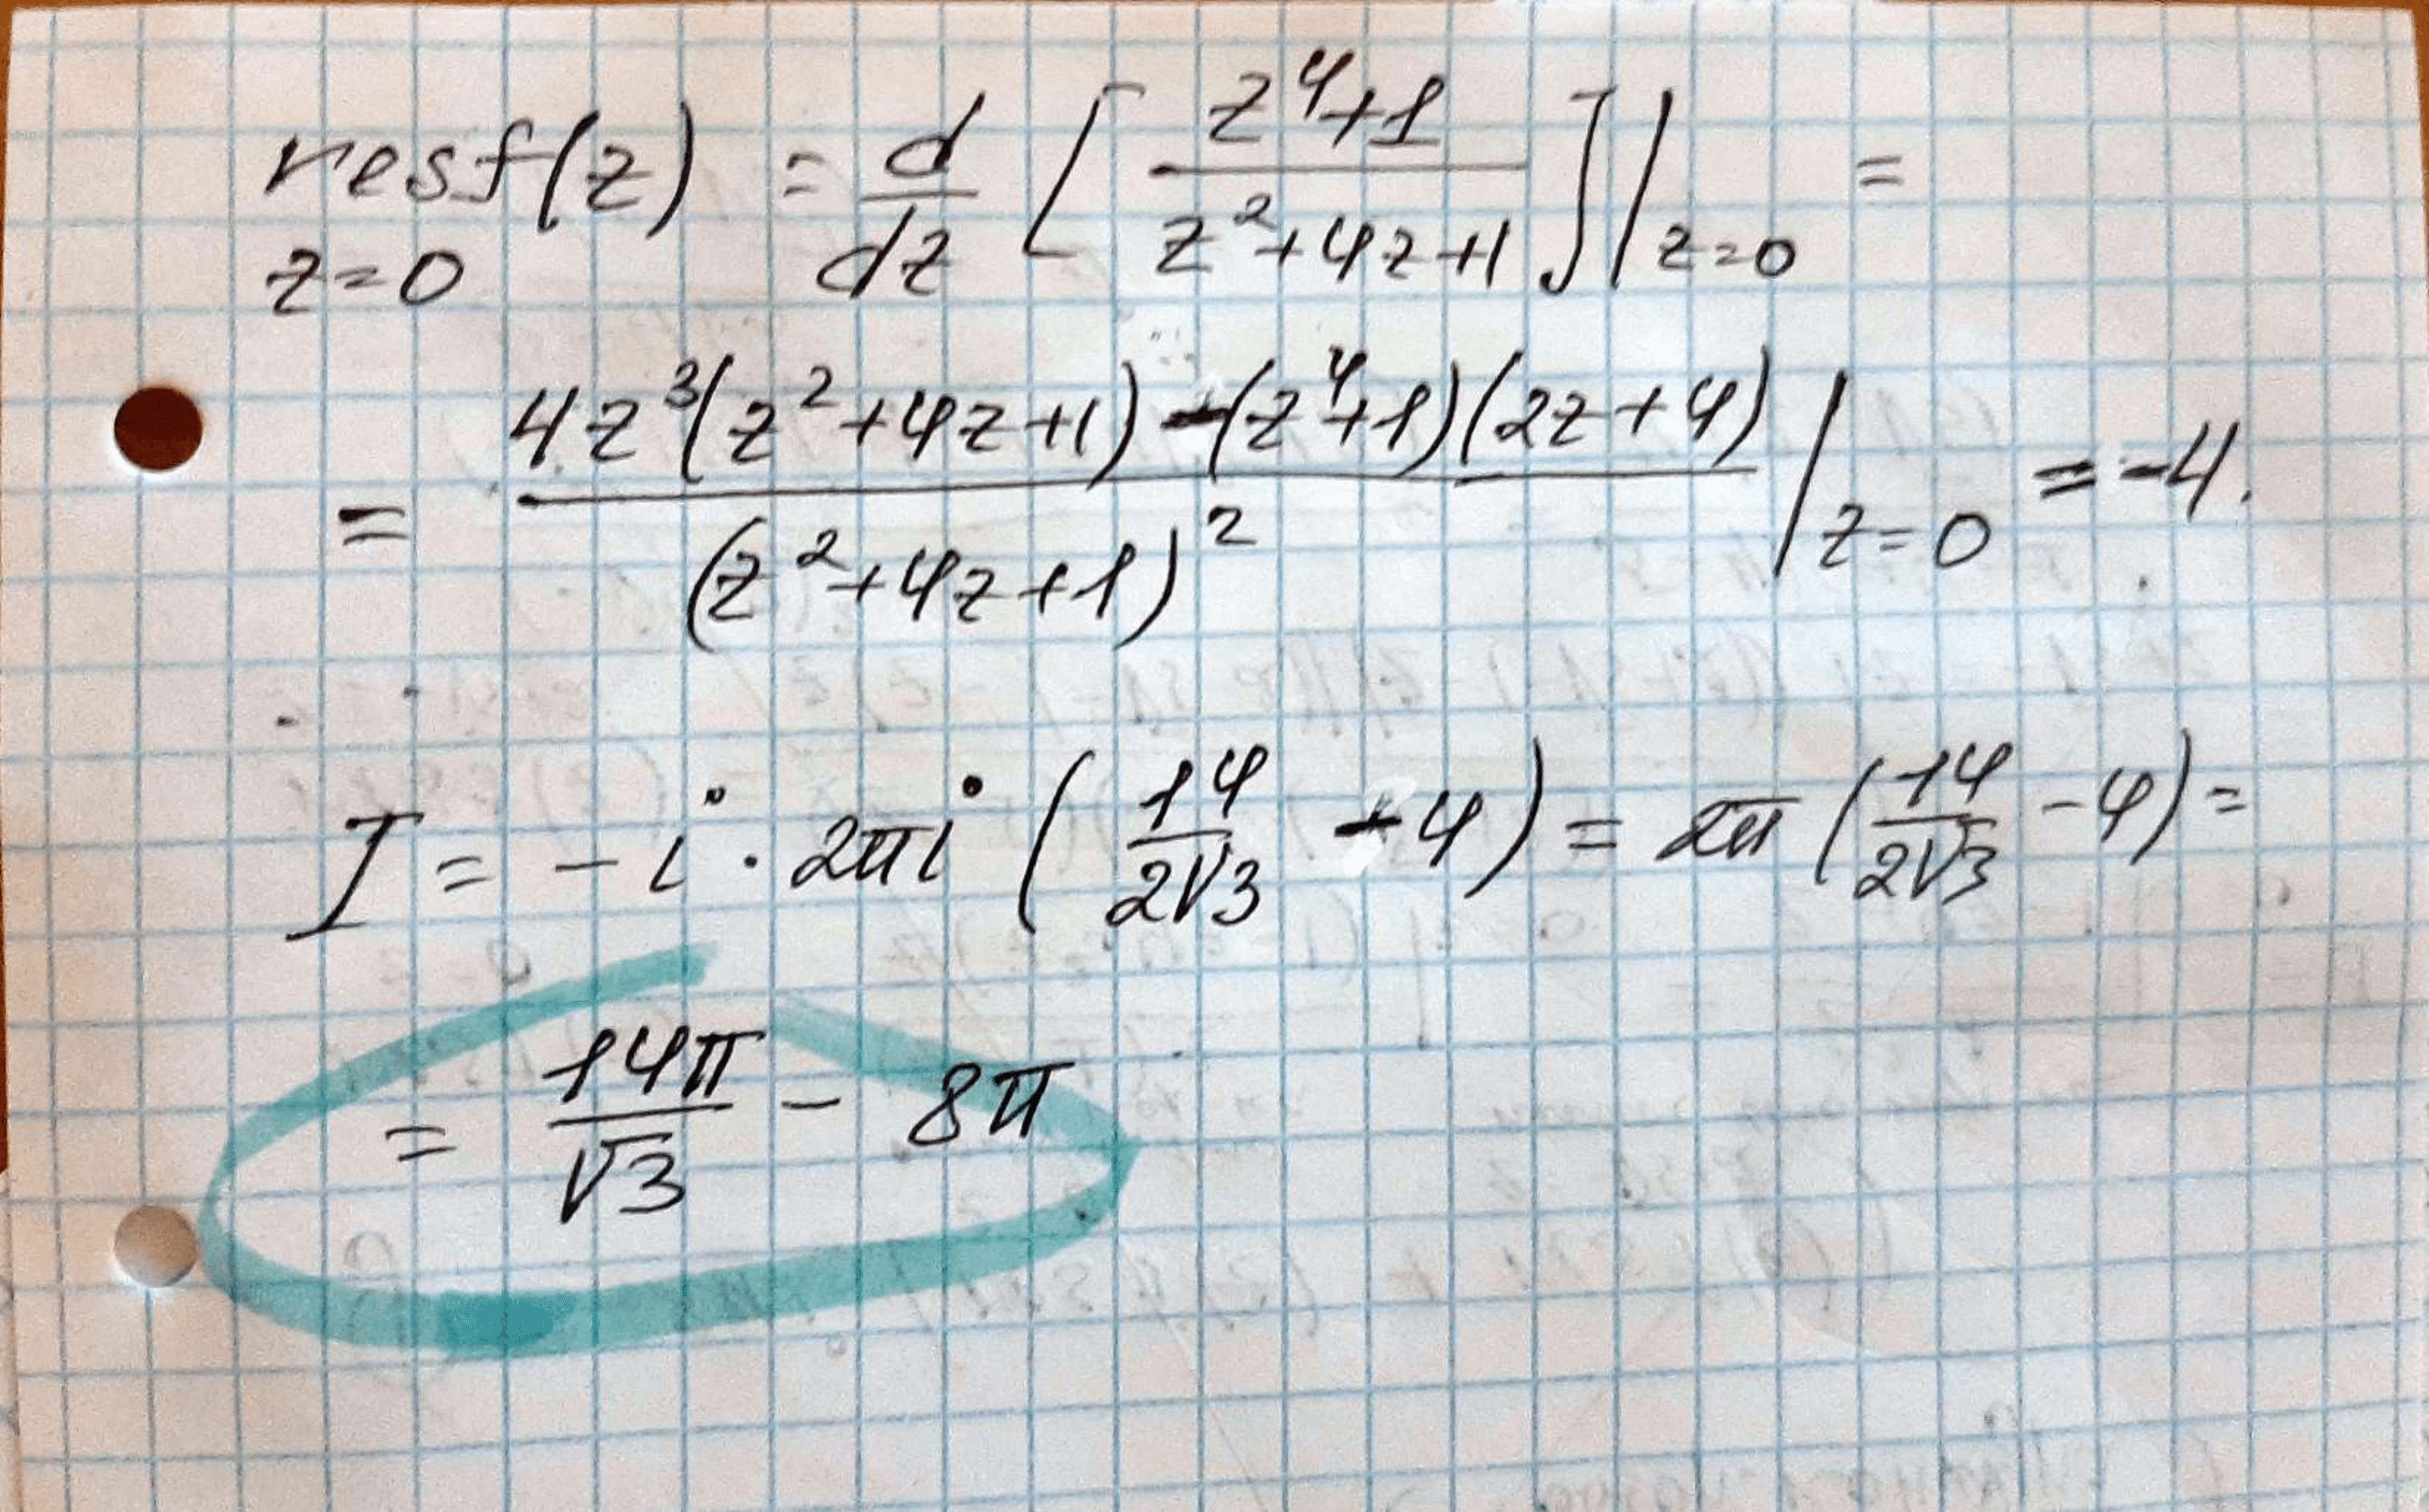 resf(z) = d/dz [ (z⁴+1)/(z²+4z+1) ] |z=0 =
z=0
= (4z³(z²+4z+1) - (z⁴+1)(2z+4))/(z²+4z+1)² |z=0 = -4.
I = -i · 2πi (14/(2√3) - 4) = 2π (14/(2√3) - 4) =
= 14π/√3 - 8π